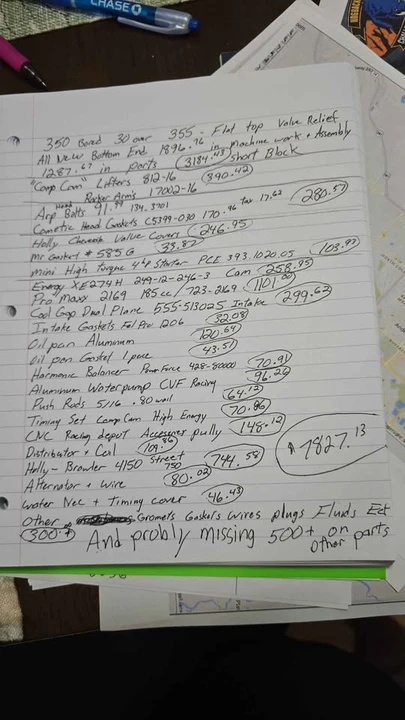 CHASE
350 Bored 30 over 355. Flat top Valve Relief
All New Bottom End 1896.76 in Machine work + Assembly
1287.67 in parts 3184.43 short Block
"Comp Cam" Lifters 812-16 390.42
Rocker Arms 17002-16
Arp Bolts 91.99 Head 134.3701
Cometic Head Gaskets C5399-030 170.96 tax 17.62 280.57
Holly Valve Covers 246.95
Mr Gasket # 585G 33.87
mini High Torque 4hp Starter PCE 393.1020.05 103.97
Energy XE274H 249-12-246-3 Cam 258.95
Pro Maxx 2169 185cc / 723-2169 1101.00
Cool Gap Dual Plane 555-513025 Intake 299.62
Intake Gaskets Fel Pro 1206 32.08
Oil pan Aluminum 120.64
Oil pan Gasket 1 piece 43.51
Harmonic Balancer PowerForce 428-80000 70.91
Aluminum Waterpump CVF Racing 96.26
Push Rods 5/16 .80 wall 64.12
Timing Set Comp Cam High Energy 70.86
CNC Racing depot pully 148.12
Distributor + Coil 109.86
Holly-Brawler 4150 Street 750 744.58
Alternator + Wire 80.02
Water Nec + Timing cover 46.43
$7827.13
Other Gromets Gaskets Wires plugs Fluids Ect
300.
And probly missing 500+ on
other parts